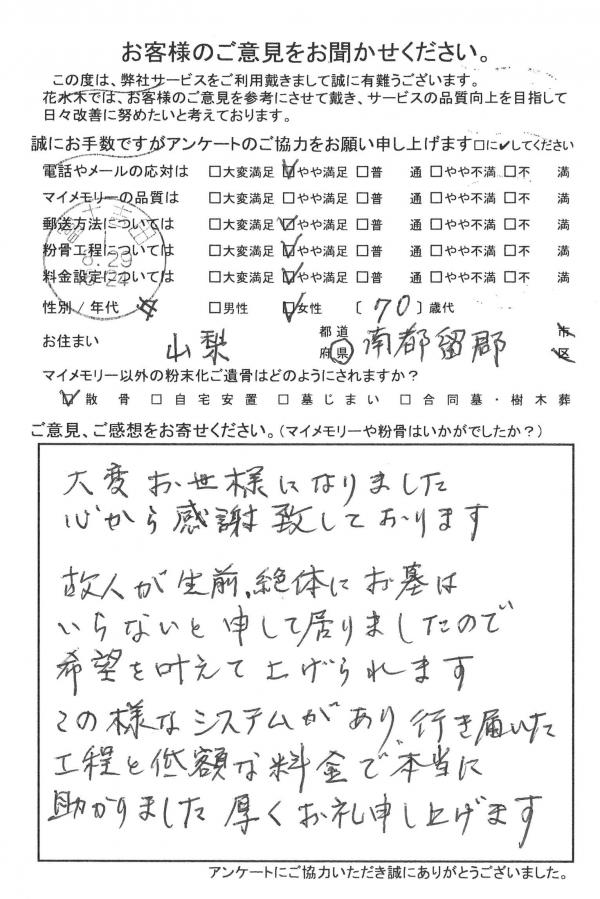 お客様のご意見をお聞かせください。
この度は、弊社サービスをご利用戴きまして誠に有難うございます。
花水木では、お客様のご意見を参考にさせて戴き、サービスの品質向上を目指して
日々改善に努めたいと考えております。
誠にお手数ですがアンケートのご協力をお願い申し上げます□に✓してください
電話やメールの応対は □大変満足 ☑やや満足 □普通 □やや不満 □不満
マイメモリーの品質は □大変満足 □やや満足 □普通 □やや不満 □不満
郵送方法については □大変満足 ☑やや満足 □普通 □やや不満 □不満
粉骨工程については □大変満足 ☑やや満足 □普通 □やや不満 □不満
料金設定については □大変満足 ☑やや満足 □普通 □やや不満 □不満
性別/年代 女 □男性 ☑女性 〔70〕歳代
お住まい 山梨 都道府県 南都留郡 市区
マイメモリー以外の粉末化ご遺骨はどのようにされますか？
☑散骨 □自宅安置 □墓じまい □合同墓・樹木葬
ご意見、ご感想をお寄せください。(マイメモリーや粉骨はいかがでしたか？)
大変お世様になりました
心から感謝致しております
故人が生前、絶体にお墓は
いらないと申して居りましたので
希望を叶えて上げられます
この様なシステムがあり、行き届いた
工程と低額な料金で本当に
助かりました 厚くお礼申し上げます
アンケートにご協力いただき誠にありがとうございました。